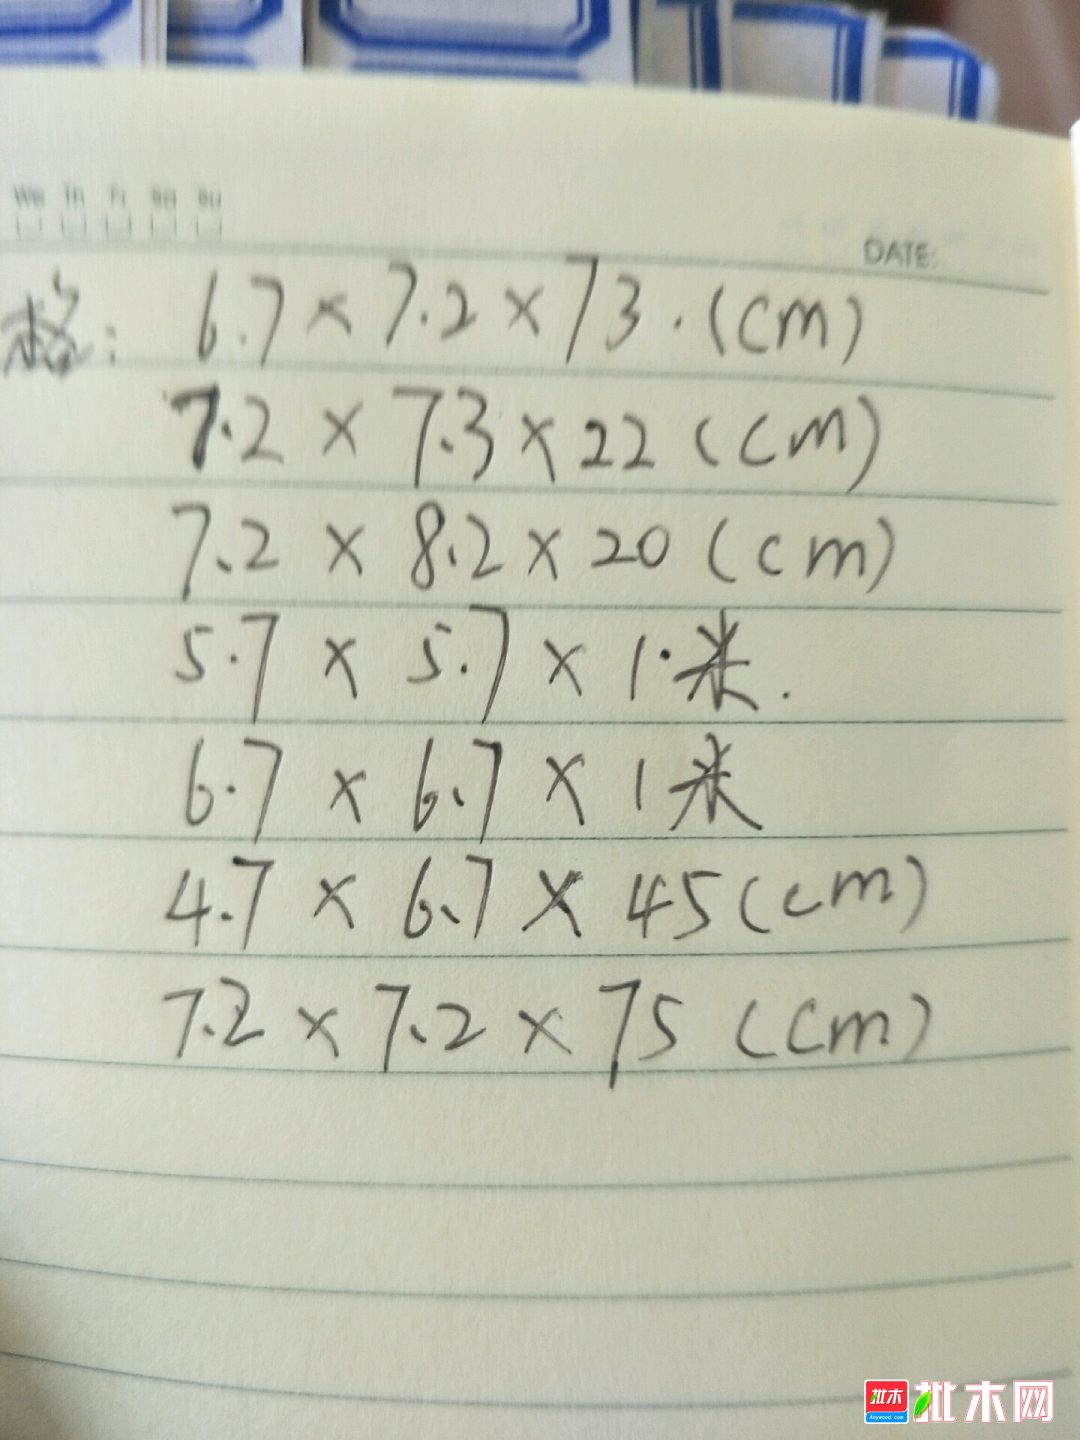 We Th Fr Sa Su
DATE:
格: 6.7 × 7.2 × 73 . (cm)
7.2 × 7.3 × 22 (cm)
7.2 × 8.2 × 20 (cm)
5.7 × 5.7 × 1·米.
6.7 × 6.7 × 1米
4.7 × 6.7 × 45 (cm)
7.2 × 7.2 × 75 (cm)
批木 批木网
Anywood.com